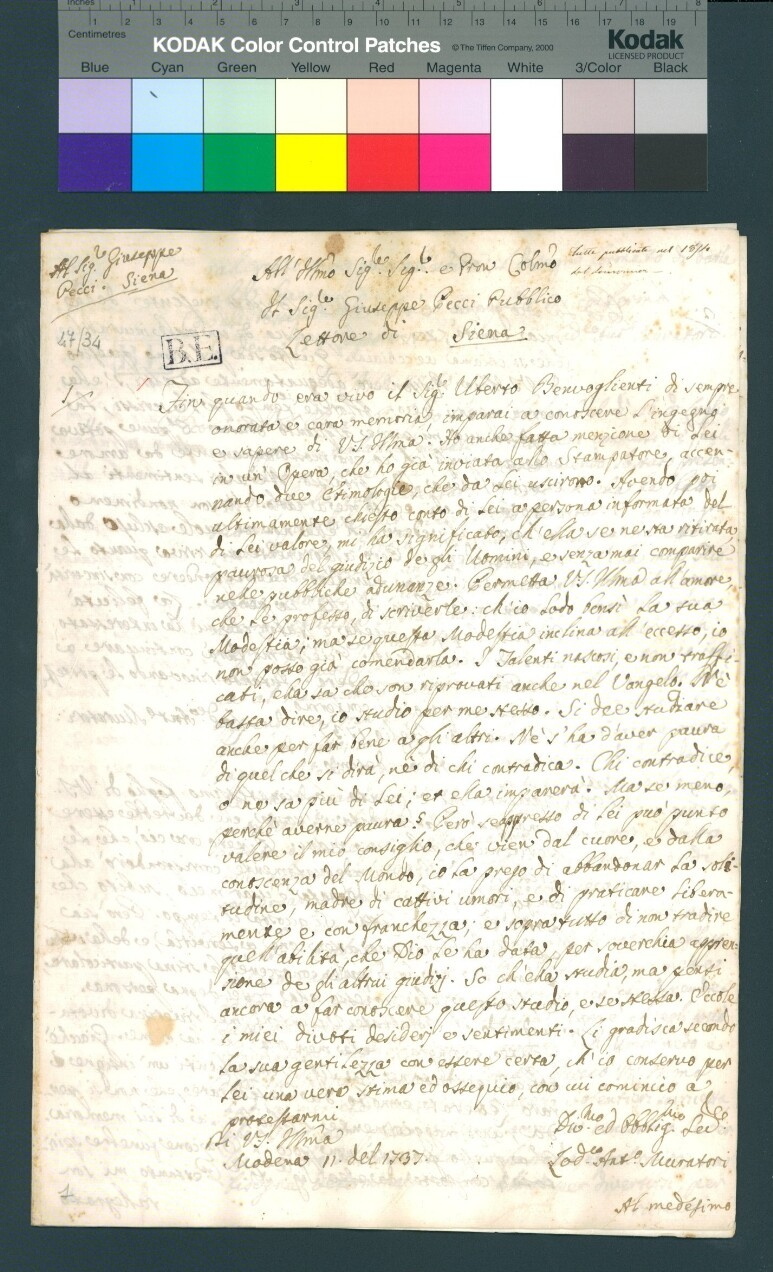 Inches 1 2 3 4 5 6 7 8
Centimetres 1 2 3 4 5 6 7 8 9 10 11 12 13 14 15 16 17 18 19
KODAK Color Control Patches © The Tiffen Company, 2000 Kodak
LICENSED PRODUCT
Blue Cyan Green Yellow Red Magenta White 3/Color Black
Al Sig.r Giuseppe
Pecci. Siena
tutte pubblicate nel
All' Illmo Sig.re Sig.re e Pron Colmo
Il Sig.re Giuseppe Pecci Pubblico
Lettore di Siena
47/34
B.E.
Fin quando era vivo il Sig.r Uberto Benvoglienti di sempre
onorata e cara memoria, imparai a conoscere l'ingegno
e sapere di V.S. Illma. Ho anche fatta menzione di Lei
in un' Opera, che ho già inviata allo Stampatore, accen-
nando due Etimologie, che da Lei uscirono. Avendo poi
ultimamente chiesto conto di Lei a persona informata del
di Lei valore, mi ha significato, ch'ella se ne sta ritirata,
paurosa del giudizio degli Uomini, e senza mai comparire
nelle pubbliche adunanze. Permetta V.S. Illma all'amore,
che Le professo, di scriverle: ch'io lodo bensì la sua
Modestia; ma se questa Modestia inclina all'eccesso, io
non posso già comendarla. I Talenti nascosi, e non traffi-
cati, ella sa che son riprovati anche nel Vangelo. Nè
basta dire, io studio per me stesso. Si dee studiare
anche per far bene agli altri. Nè s'ha d'aver paura
di quel che si dirà, nè di chi contradica. Chi contradice,
o ne sa più di Lei; et ella imparerà. Ma se meno,
perchè averne paura? Però se appresso di Lei può punto
valere il mio consiglio, che vien dal cuore, e dalla
conoscenza del Mondo, io La prego di abbandonar la soli-
tudine, madre di cattivi umori, e di praticare libera-
mente e con franchezza; e sopra tutto di non tradire
quell'abilità, che Dio Le ha data, per soverchia appren-
sione degli altrui giudizj. So ch'ella studia, ma pensi
ancora a far conoscere questo studio, e se stessa. Eccole
i miei divoti desiderj e sentimenti. Li gradisca secondo
la sua gentilezza con essere certa, ch'io conservo per
Lei una vera stima ed ossequio, con cui comincio a
protestarmi
Di V.S. Illma
Modena 11. del 1737.
Div.mo ed Obblig.mo Se.re
Lod.co Ant.o Muratori
Al medesimo
1